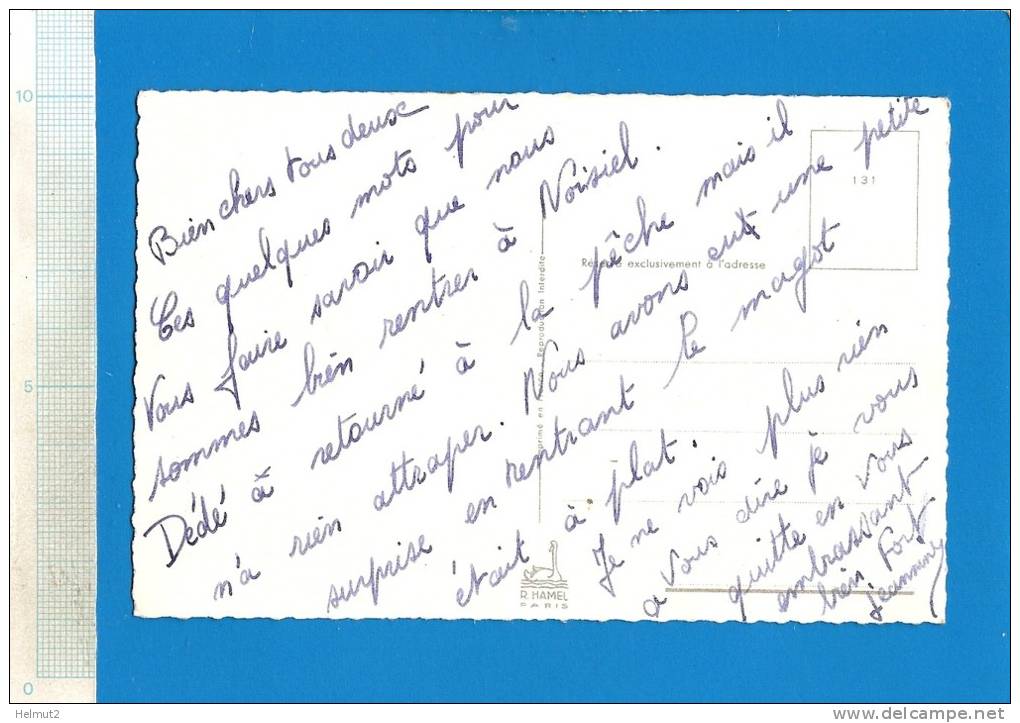 10
5
0
Bien chers tous deux
Ces quelques mots pour
vous faire savoir que nous
sommes bien rentrer à Noisiel.
Dédé à retourné à la pêche mais il
n'a rien attraper. Nous avons eut une petite
surprise en rentrant le magot
était à plat.
Je ne vois plus rien
a vous dire je vous
quitte en vous
embrassant
bien fort
jeannine
131
Réservé exclusivement à l'adresse
Imprimé en France Reproduction Interdite
R. HAMEL
PARIS
Helmut2
www.delcampe.net